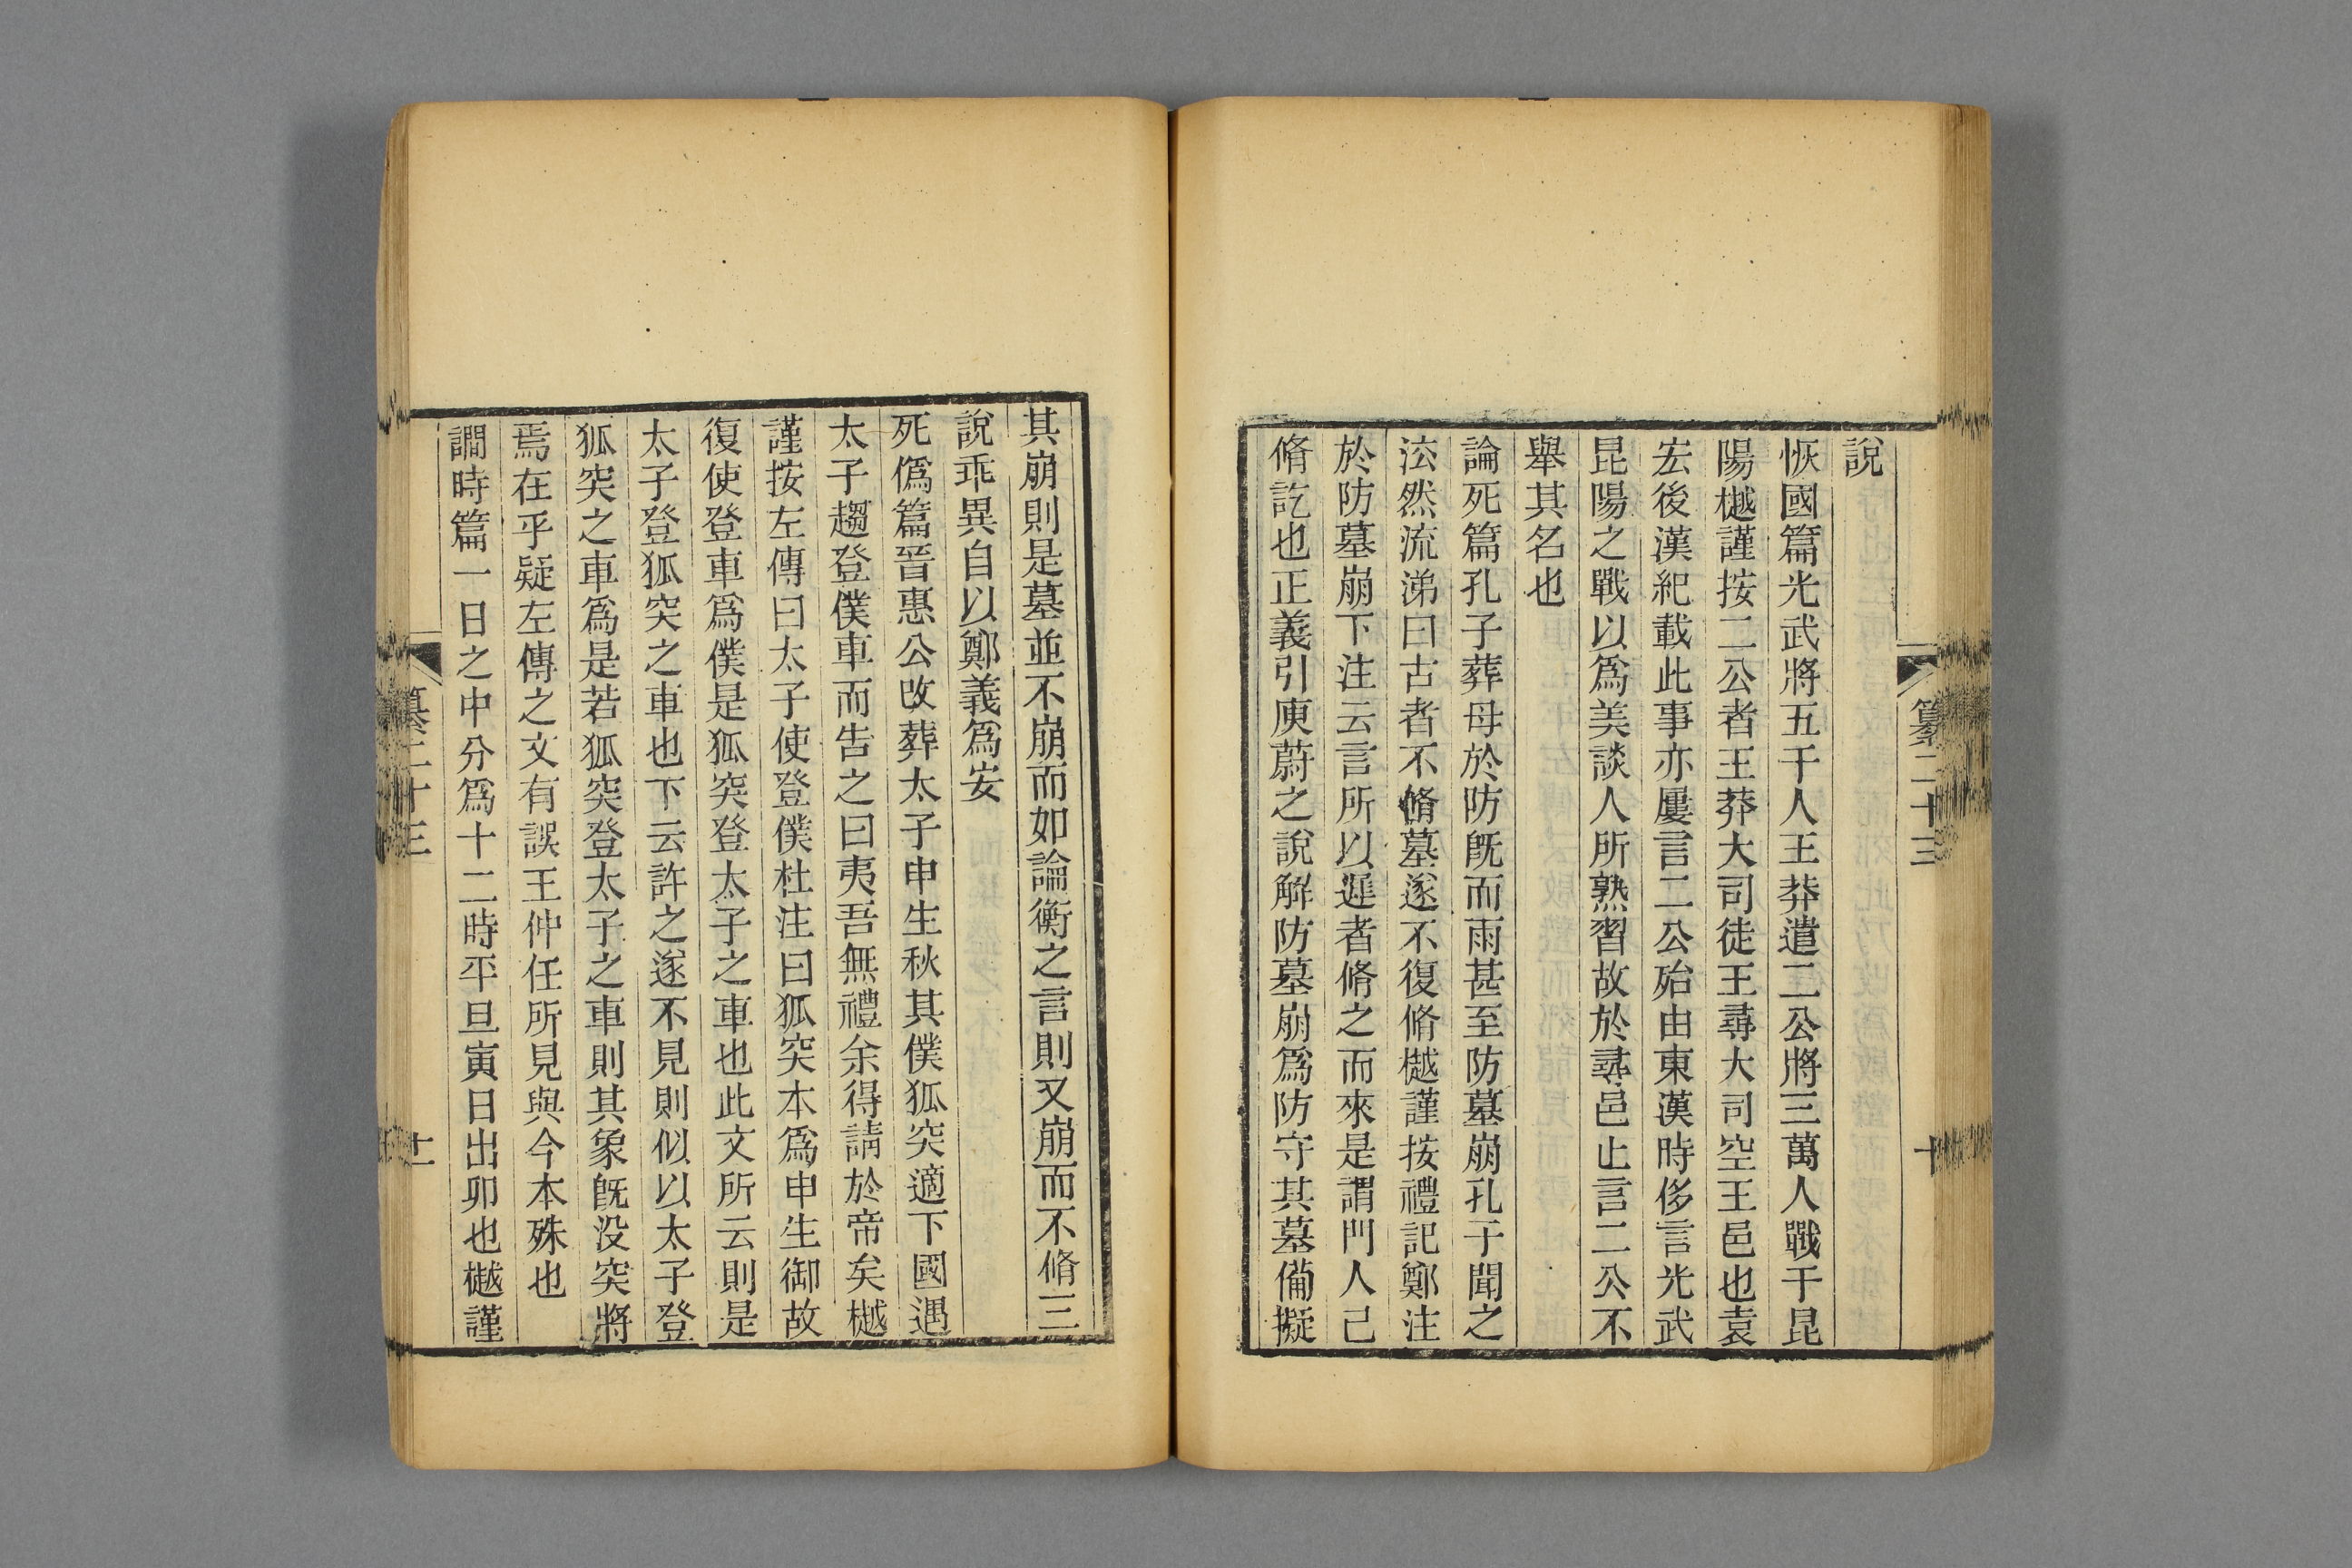 纂二十三
十
說
恢國篇光武將五千人王莽遣二公將三萬人戰于昆
陽樾謹按二公者王莽大司徒王尋大司空王邑也袁
宏後漢紀載此事亦屢言二公殆由東漢時侈言光武
昆陽之戰以爲美談人所熟習故於尋邑止言二公不
舉其名也
論死篇孔子葬母於防旣而雨甚至防墓崩孔子聞之
泫然流涕曰古者不脩墓遂不復脩樾謹按禮記鄭注
於防墓崩下注云言所以遲者脩之而來是謂門人己
脩訖也正義引庾蔚之說解防墓崩爲防守其墓備擬
其崩則是墓並不崩而如論衡之言則又崩而不脩三
說乖異自以鄭義爲安
死僞篇晉惠公改葬太子申生秋其僕狐突適下國遇
太子趨登僕車而告之曰夷吾無禮余得請於帝矣樾
謹按左傳曰太子使登僕杜注曰狐突本爲申生御故
復使登車爲僕是狐突登太子之車也此文所云則是
太子登狐突之車也下云許之遂不見則似以太子登
狐突之車爲是若狐突登太子之車則其象旣没突將
焉在乎疑左傳之文有誤王仲任所見與今本殊也
譋時篇一日之中分爲十二時平旦寅日出卯也樾謹
纂二十三
十一